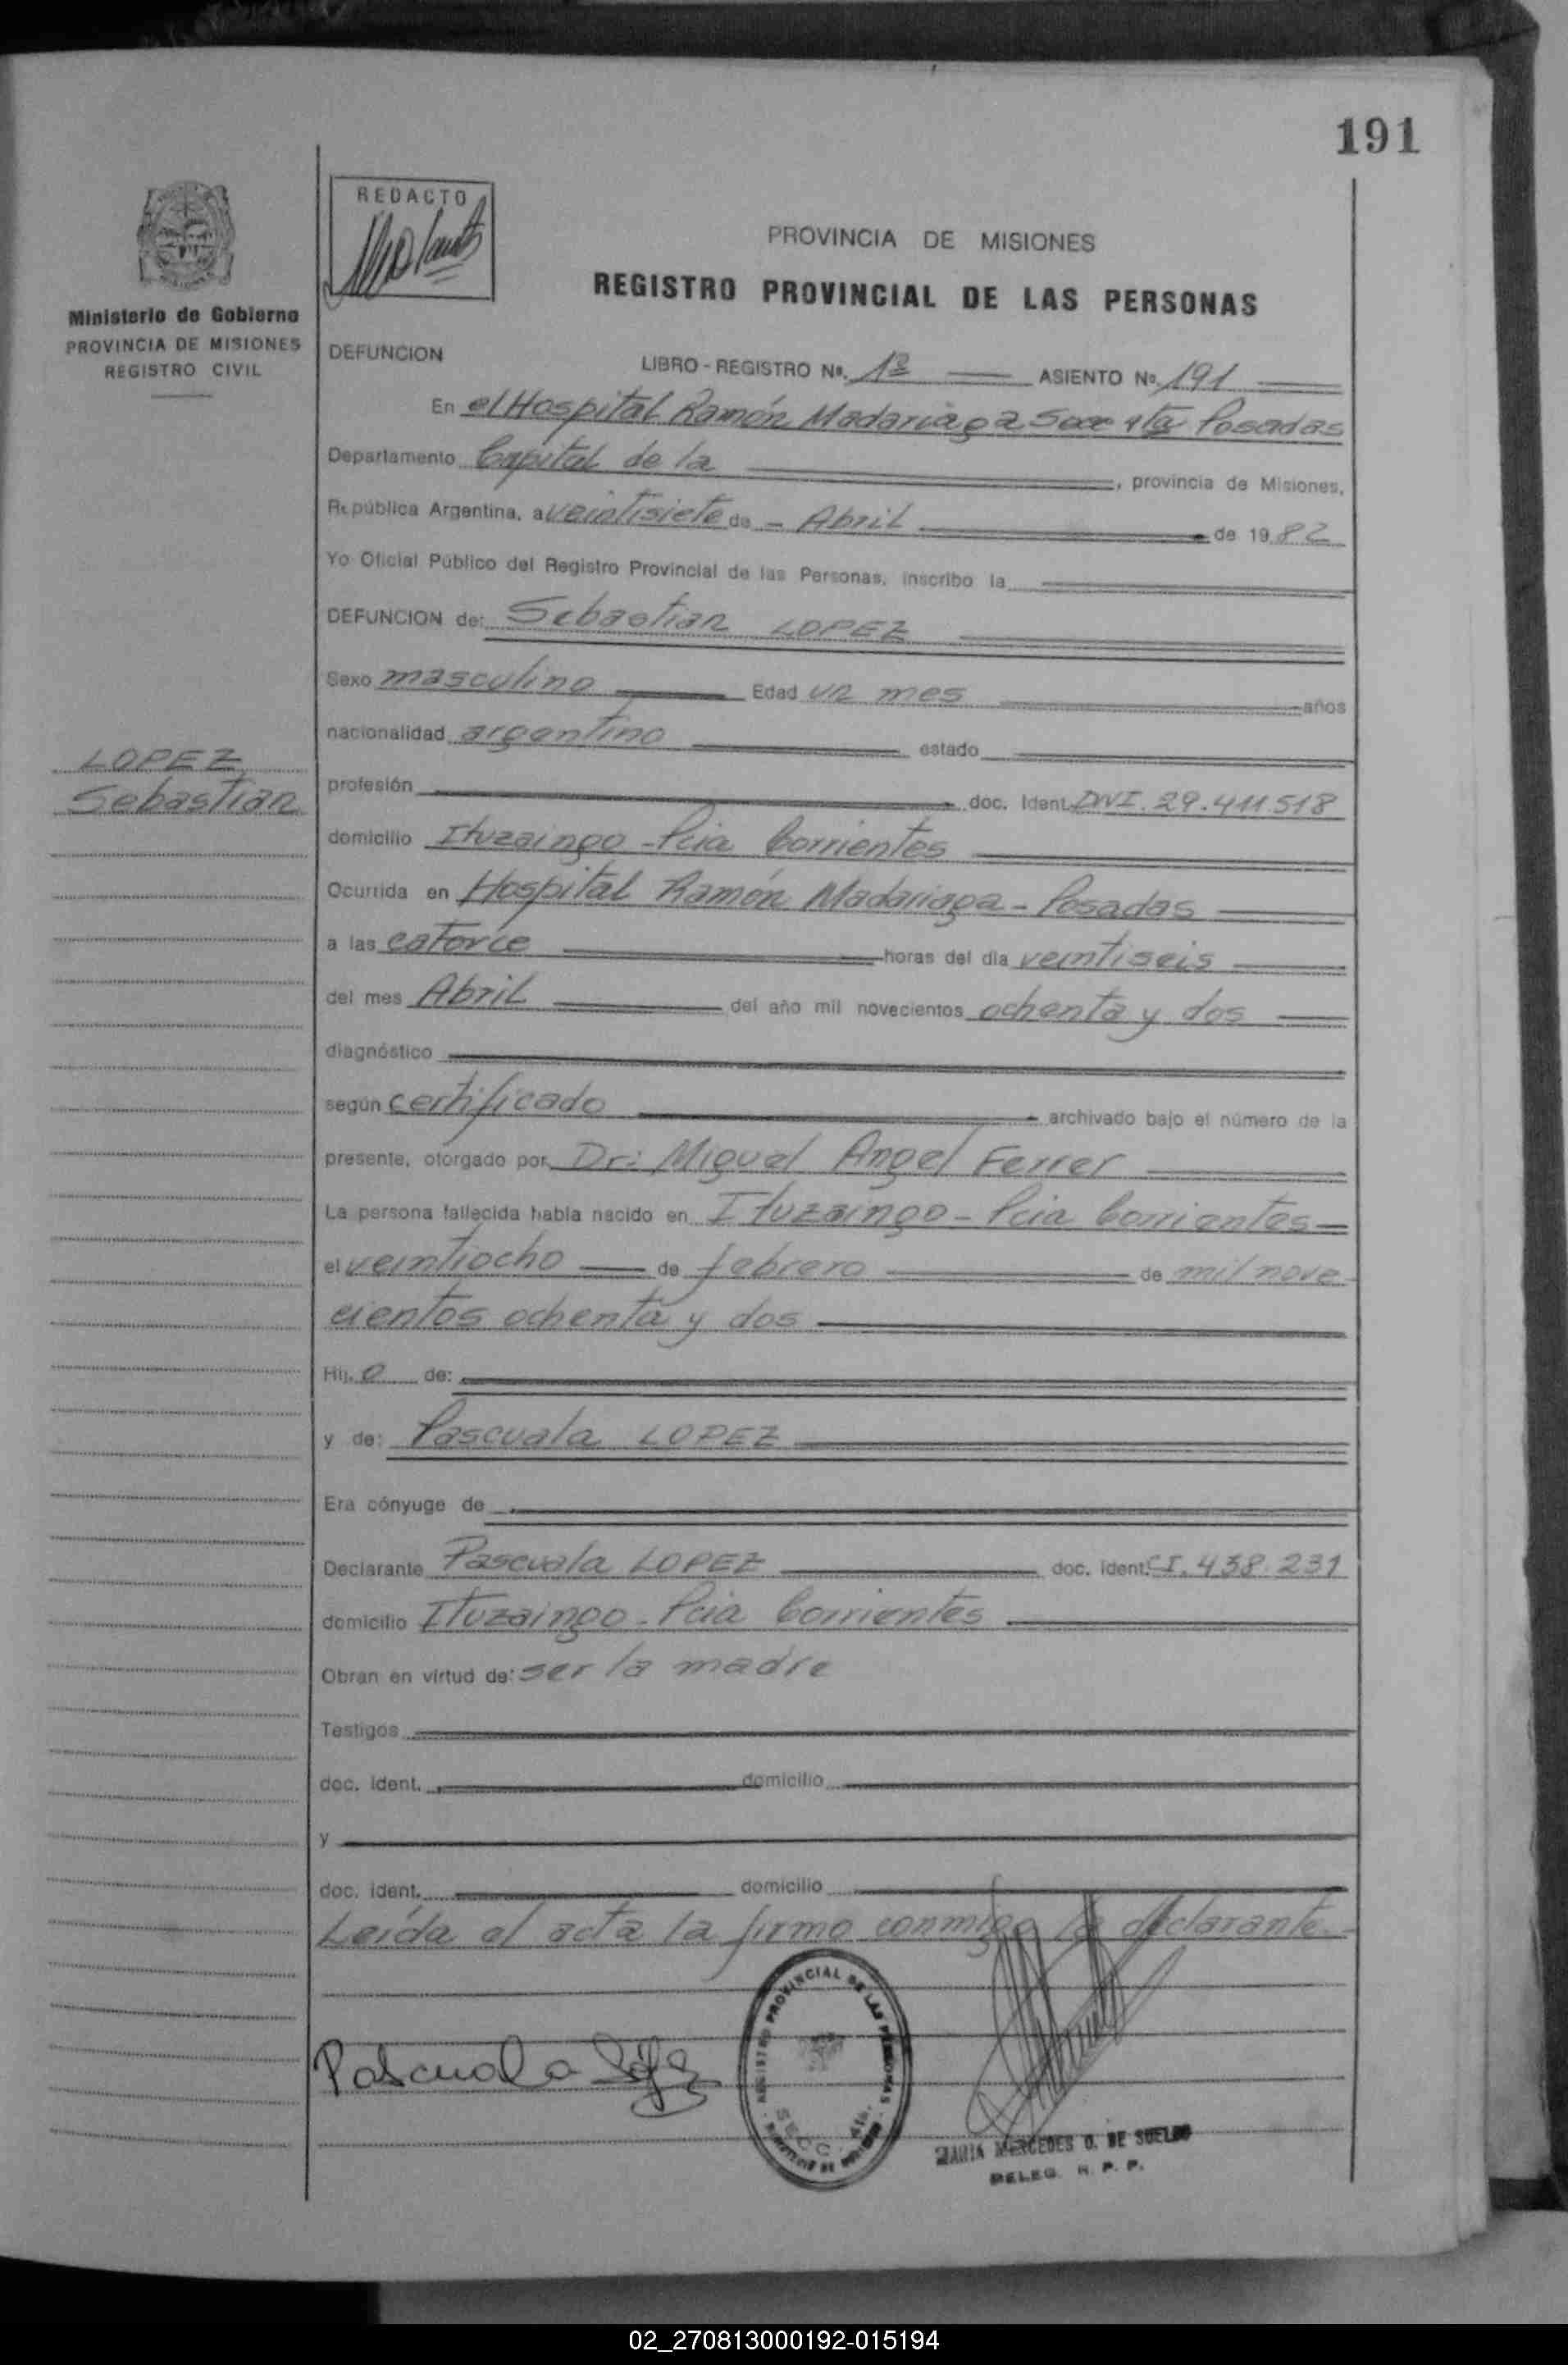 191
REDACTO
PROVINCIA DE MISIONES
REGISTRO PROVINCIAL DE LAS PERSONAS
Ministerio de Gobierno
PROVINCIA DE MISIONES
REGISTRO CIVIL
DEFUNCION LIBRO-REGISTRO Nº. 1º ASIENTO Nº. 191
En el Hospital Ramón Madariaga Secc 4ta Posadas
Departamento Capital de la , provincia de Misiones,
República Argentina, a veintisiete de - Abril de 1982
Yo Oficial Público del Registro Provincial de las Personas, inscribo la
DEFUNCION de: Sebastian LOPEZ
Sexo masculino Edad un mes años
nacionalidad argentino estado
LOPEZ
Sebastian
profesión doc. Ident. DNI. 29.411.518
domicilio Ituzaingo - Pcia Corrientes
Ocurrida en Hospital Ramón Madariaga - Posadas
a las catorce horas del día veintiseis
del mes Abril del año mil novecientos ochenta y dos
diagnóstico
según certificado archivado bajo el número de la
presente, otorgado por Dr: Miguel Angel Ferrer
La persona fallecida había nacido en Ituzaingo - Pcia Corrientes
el veintiocho de febrero de mil nove
cientos ochenta y dos
Hij. o de:
y de: Pascuala LOPEZ
Era cónyuge de
Declarante Pascuala LOPEZ doc. ident. CI. 438.231
domicilio Ituzaingo - Pcia Corrientes
Obran en virtud de: ser la madre
Testigos
doc. ident. domicilio
y
doc. ident. domicilio
Leída el acta la firmo conmigo la declarante.
Pascuala López
REGISTRO PROVINCIAL DE LAS PERSONAS
SECC. 4ta.
MARIA MERCEDES O. DE SUELDO
DELEG. R. P. P.
02_270813000192-015194